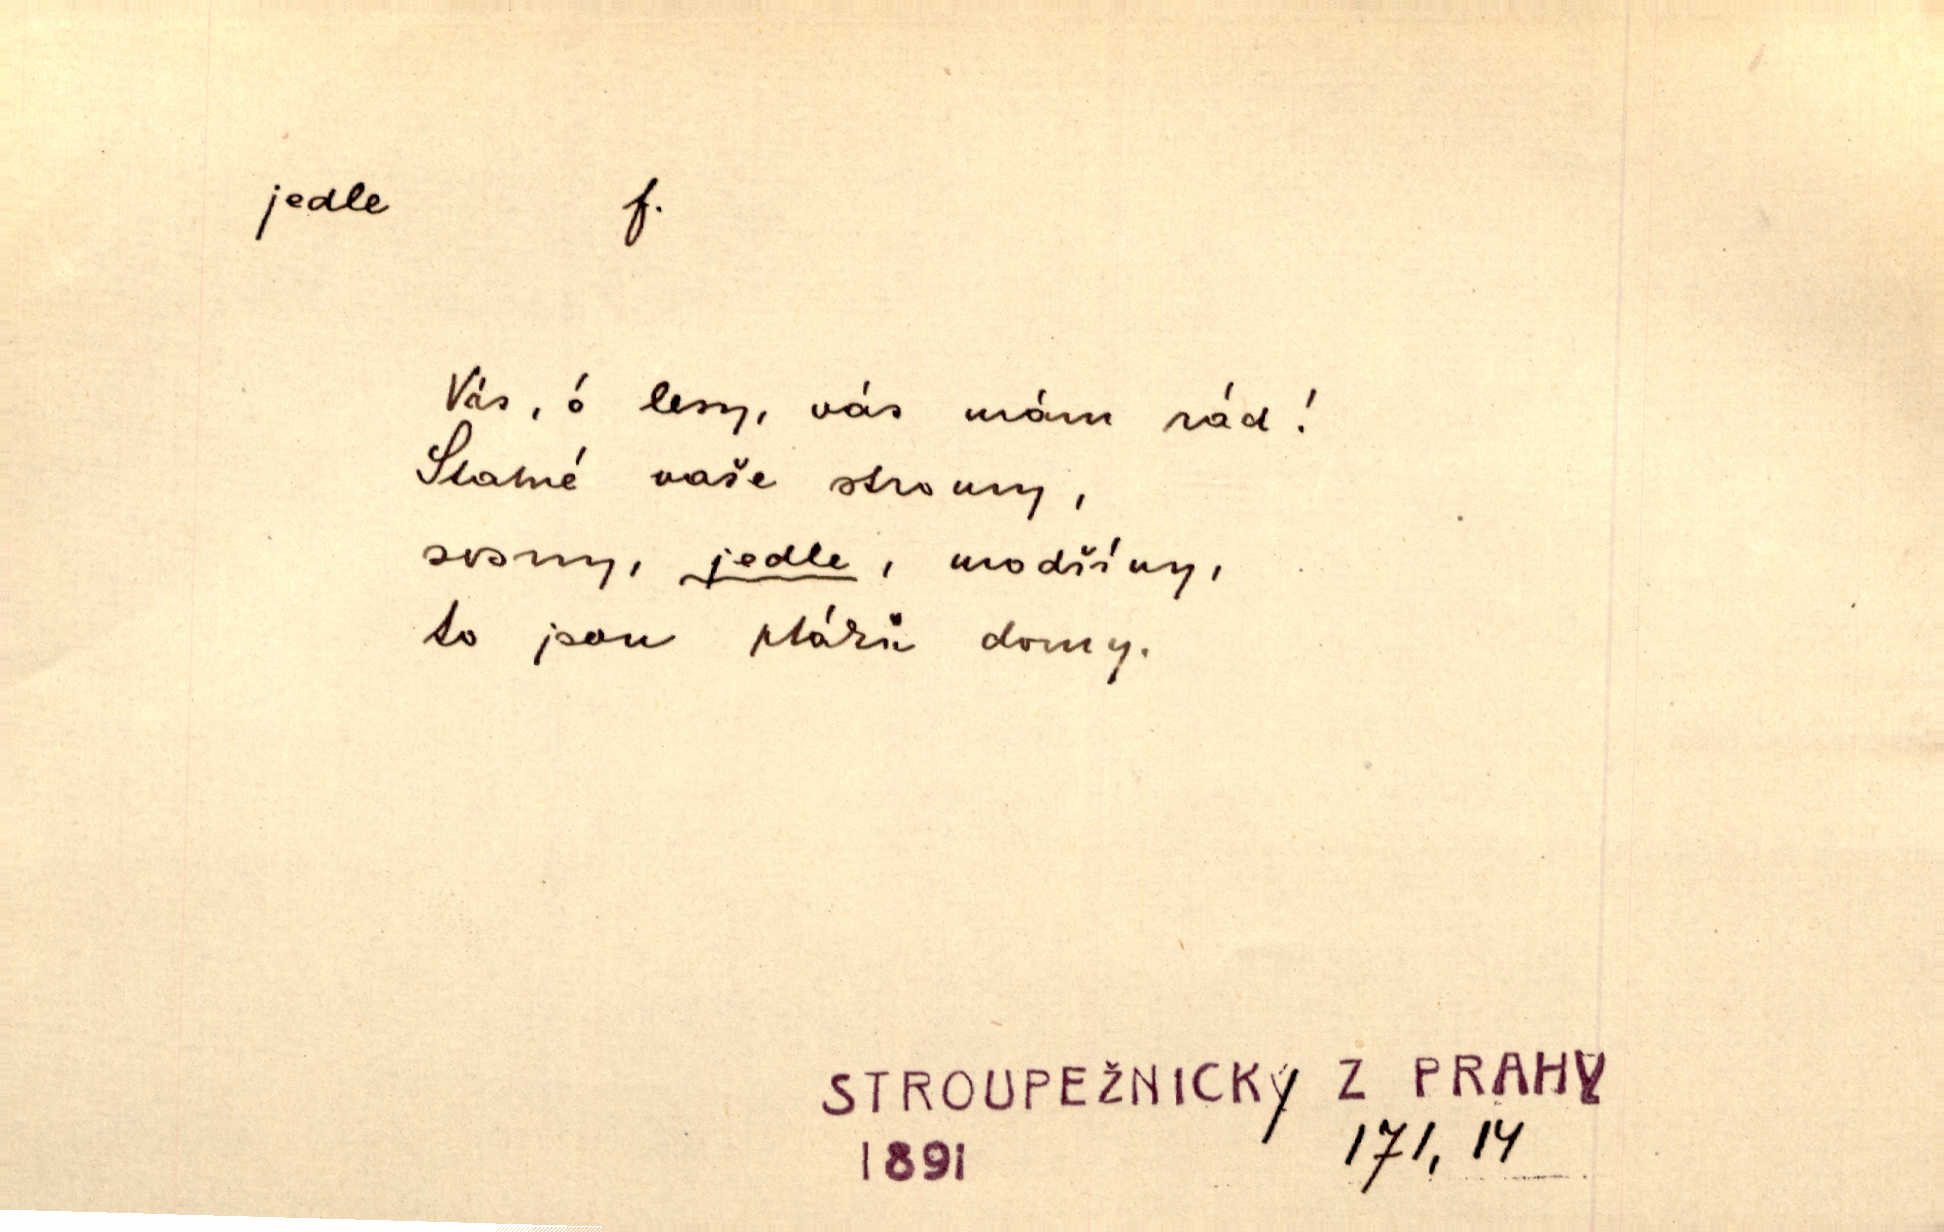 jedle f.
Vás, ó lesy, vás mám rád!
Statné vaše stromy,
sosny, jedle, modříny,
to jsou ptáků domy.
STROUPEŽNICKý Z PRAHY
1891 171, 14